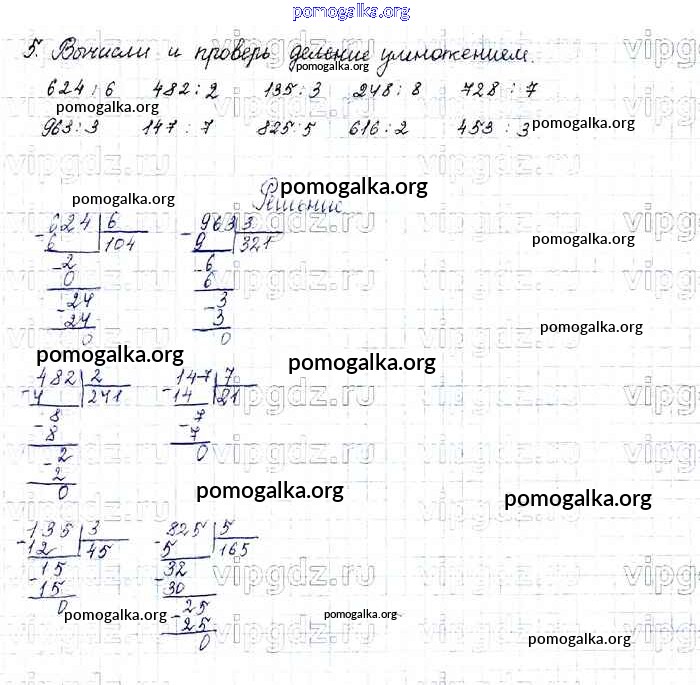 pomogalka.org
5. Вычисли и проверь деление умножением.
pomogalka.org
624 : 6 482 : 2 135 : 3 248 : 8 728 : 7
pomogalka.org
963 : 3 147 : 7 825 : 5 616 : 2 453 : 3
pomogalka.org
pomogalka.org
pomogalka.org
Решение
pomogalka.org
-624 | 6 -963 | 3
6 104 9 321
-2 -6
0 6
-24 -3
24 3
0 0
pomogalka.org
pomogalka.org
pomogalka.org
-482 | 2 -147 | 7
4 241 14 21
-8 -7
8 7
-2 0
2
0
pomogalka.org
pomogalka.org
-135 | 3 -825 | 5
12 45 5 165
-15 -32
15 30
0 -25
25
0
pomogalka.org
pomogalka.org
pomogalka.org
vipgdz.ru